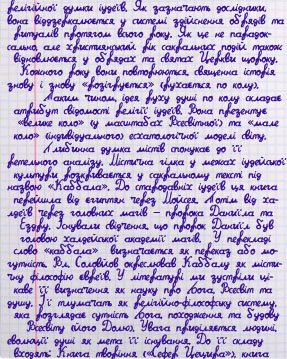 релігійної думки іудеїв. Як зазначають дослідники,
вона віддзеркалюється у системі здійснення обрядів та
ритуалів протягом всього року. Як це не парадок-
сально, але християнський рік сакральних подій також
відновлюється у обрядах та святах Церкви щороку.
Кожного року вони повторюються, священна історія
знову і знову "розігрується" (рухається по колу).
Таким чином, ідея руху душі по колу складає
атрибут свідомості релігії іудеїв. Вона презентує
"велике коло" (у масштабах Всесвітної) та "мале
коло" (індивідуального) есхатологічної моделі світу.
Глибинна думка містів спонукає до її
ретельного аналізу. Містична гілка у межах іудейської
культури розкривається у сакральному тексті під
назвою "Каббала". До стародавніх іудеїв ця книга
перейшла від египтян через Мойсея. Потім від ха-
лдеїв через головних магів – пророка Даниїла та
Ездру. Існували свідчення, що пророк Даниїл був
головою халдейської академії магів. У перекладі
слово "каббала" визначається як переказ або мо-
гутність. Вл. Соловйов окреслював Каббалу як місти-
чну філософію євреїв. У літературі ми зустріли ці-
каве її визначення як науку про Бога, Всесвіт та
душу. Її тлумачать як релігійно-філософську систему,
яка розглядає сутність Бога, походження та будову
Всесвіту (його Долю). Увага приділяється людині,
еволюції душі як мета її існування. До її складу
входять: Книга творіння ("Сефер Йецира"), книга